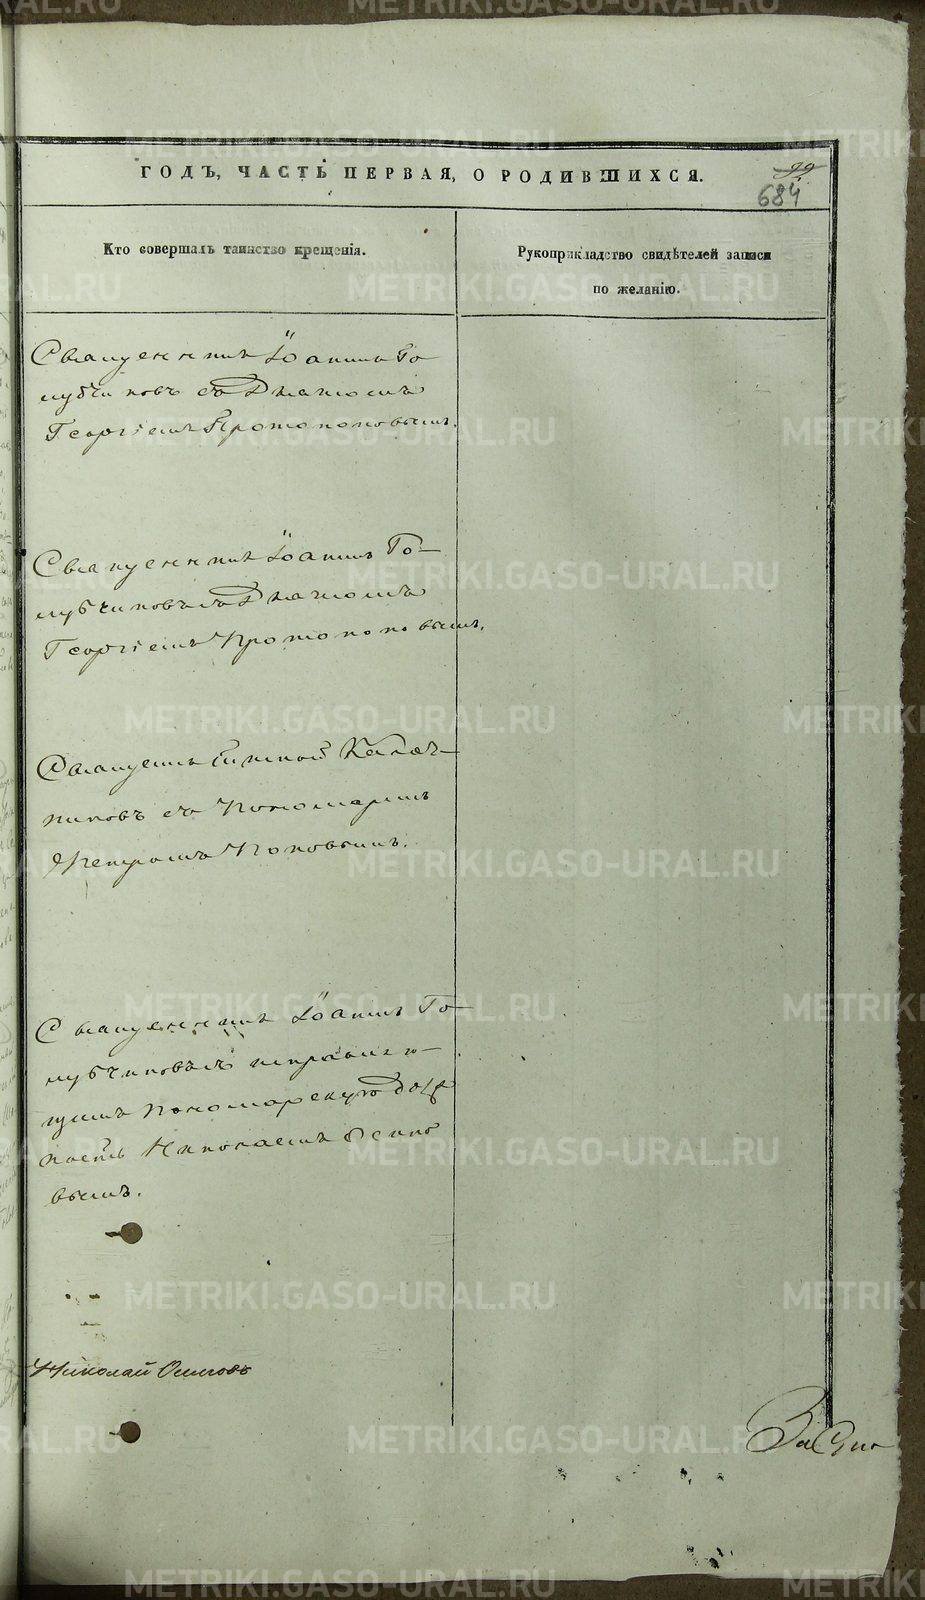 ГОДЪ, ЧАСТЬ ПЕРВАЯ, О РОДИВШИХСЯ.
99
684
Кто совершалъ таинство крещенія.
Рукоприкладство свидѣтелей записи
по желанію.
Священникъ Іоаннъ Го
лубчиковъ съ Дьякомъ
Георгіемъ Протопоповымъ.
Священникъ Іоаннъ Го-
лубчиковъ съ Дьякомъ
Георгіемъ Протопоповымъ.
Священникъ Калач-
никовъ съ Пономаремъ
Петромъ Поповымъ.
Священникъ Іоаннъ Го-
лубчиковъ съ исправляю-
щимъ Пономарскую долж
ность Николаемъ Осипо
вымъ.
Николай Осиповъ
METRIKI.GASO-URAL.RU